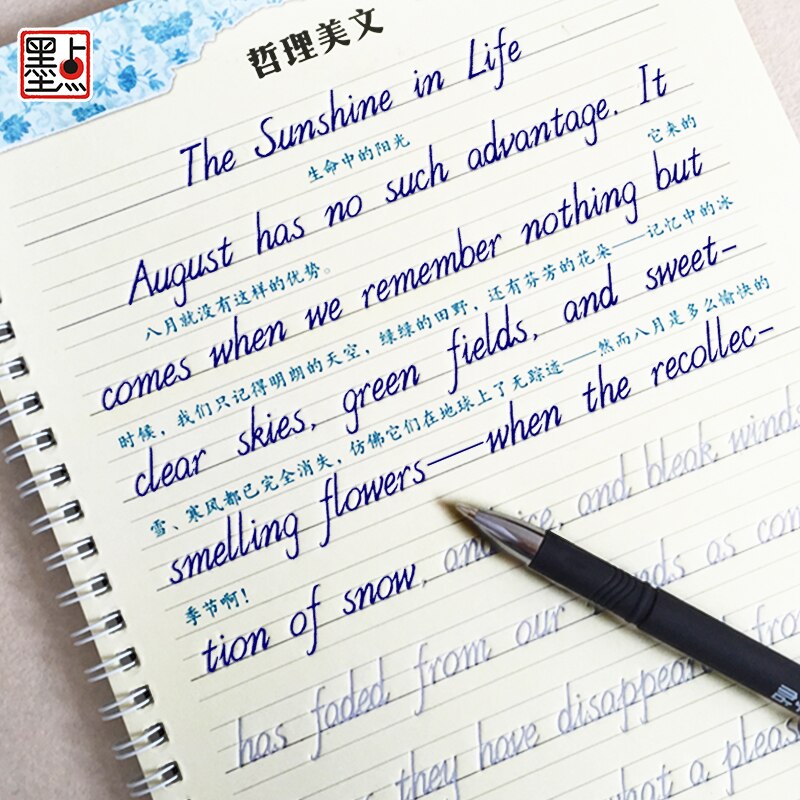 墨点
哲理美文
The Sunshine in Life
生命中的阳光
August has no such advantage. It
八月就没有这样的优势。 它来的
comes when we remember nothing but
时候，我们只记得明朗的天空，绿绿的田野，还有芬芳的花朵——记忆中的冰
clear skies, green fields, and sweet-
雪、寒风都已完全消失，仿佛它们在地球上了无踪迹——然而八月是多么愉快的
smelling flowers—when the recollec-
季节啊！
tion of snow, and ice, and bleak winds
has faded from our as
they have what a